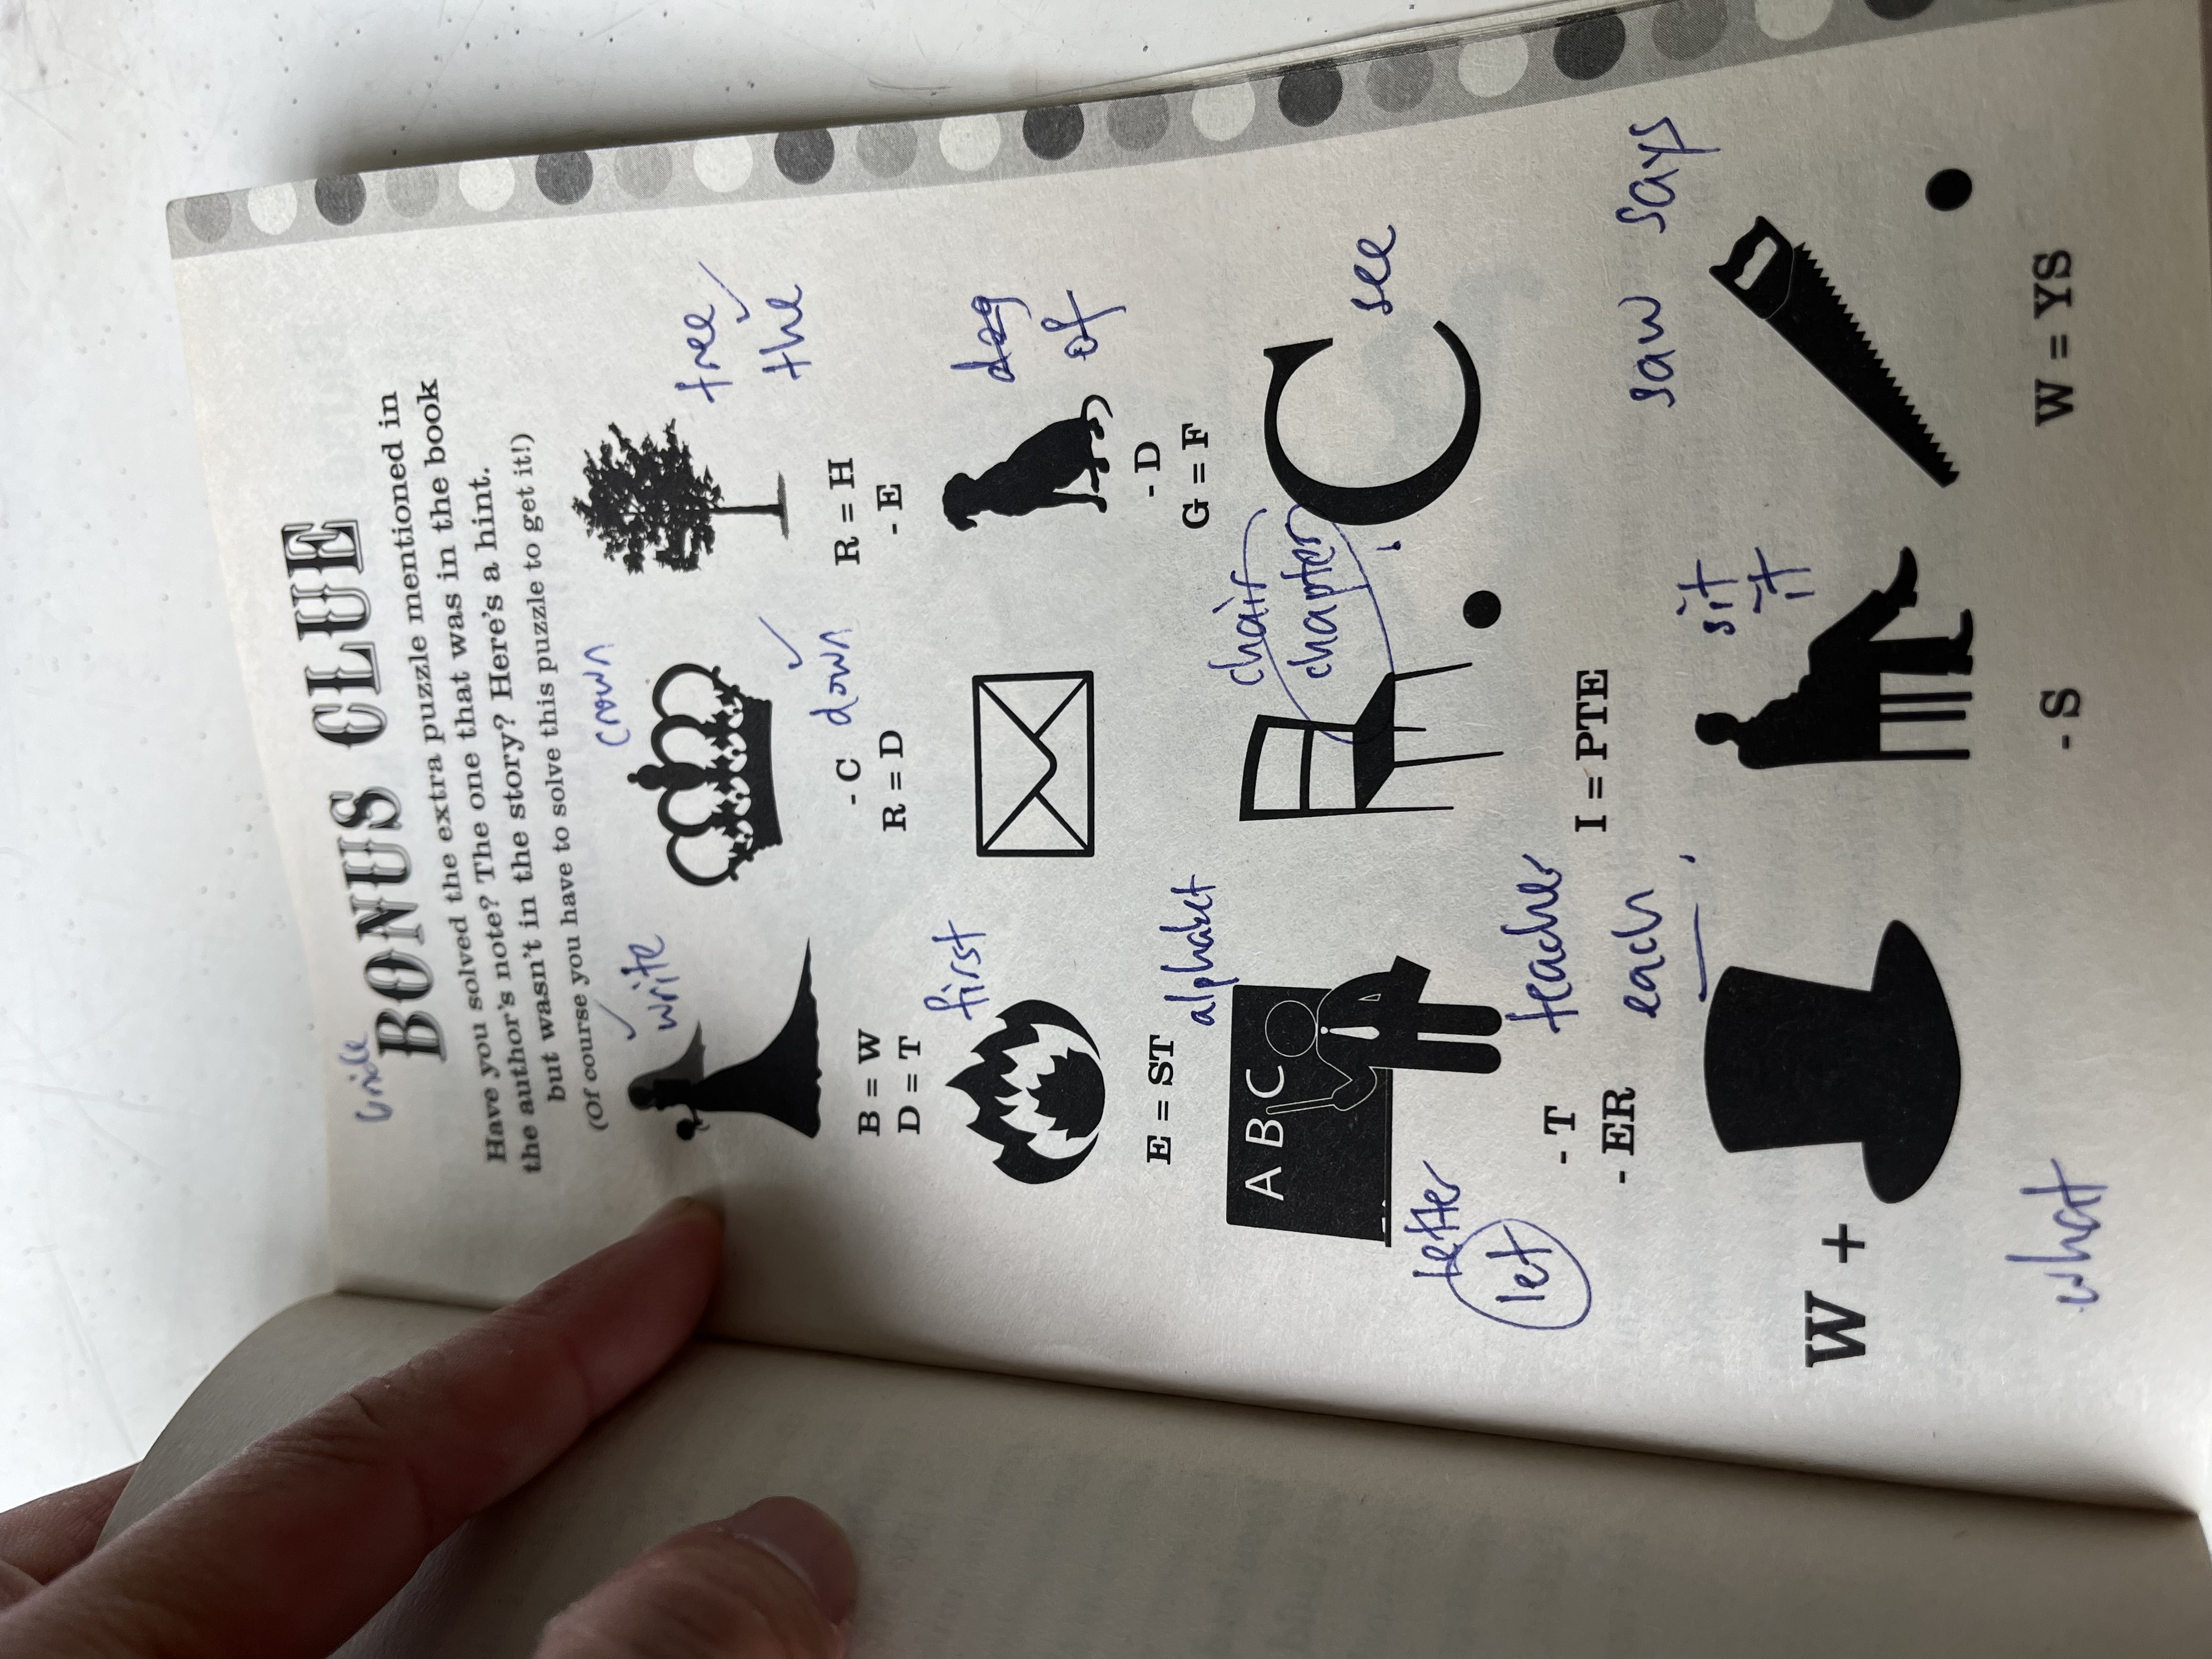 bride
BONUS CLUE
Have you solved the extra puzzle mentioned in
the author's note? The one that was in the book
but wasn't in the story? Here's a hint.
(Of course you have to solve this puzzle to get it!)
write
crown
tree
the
B = W
D = T
- C
R = D
down
R = H
- E
first
dog
of
E = ST
- D
G = F
alphabet
A B C
chair
chapter
C
see
letter
let
- T
- ER
teacher
each
I = PTE
W +
what
sit
it
- S
saw says
W = YS